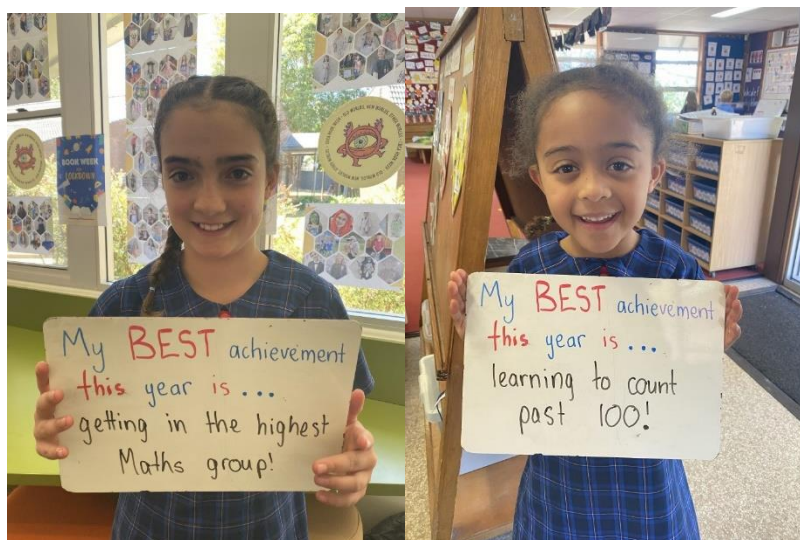 BOOK WEEK
LOCKDOWN
My BEST achievement
this year is ...
getting in the highest
Maths group!
My BEST achievement
this year is ...
learning to count
past 100!